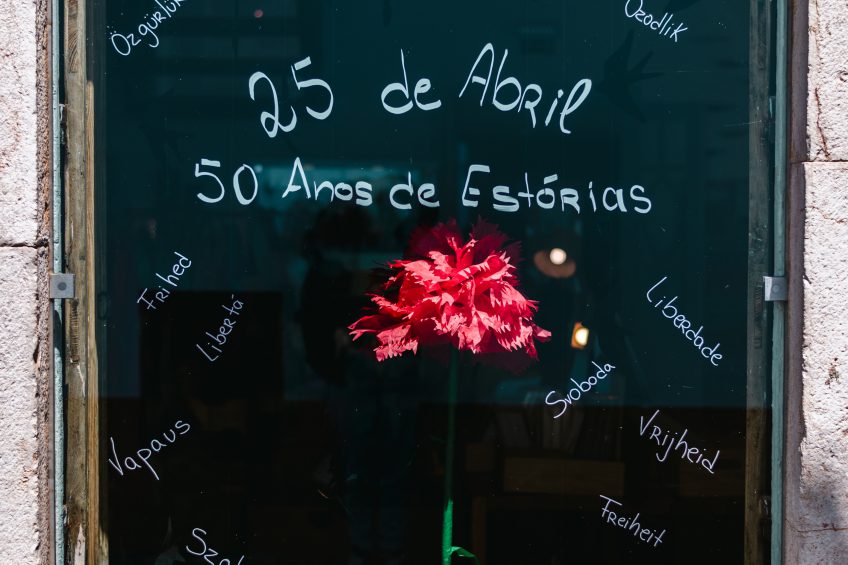 Özgürlük
Ozodlik
25 de Abril
50 Anos de Estórias
Frihed
Libertá
Liberdade
Svoboda
Vapaus
Vrijheid
Freiheit